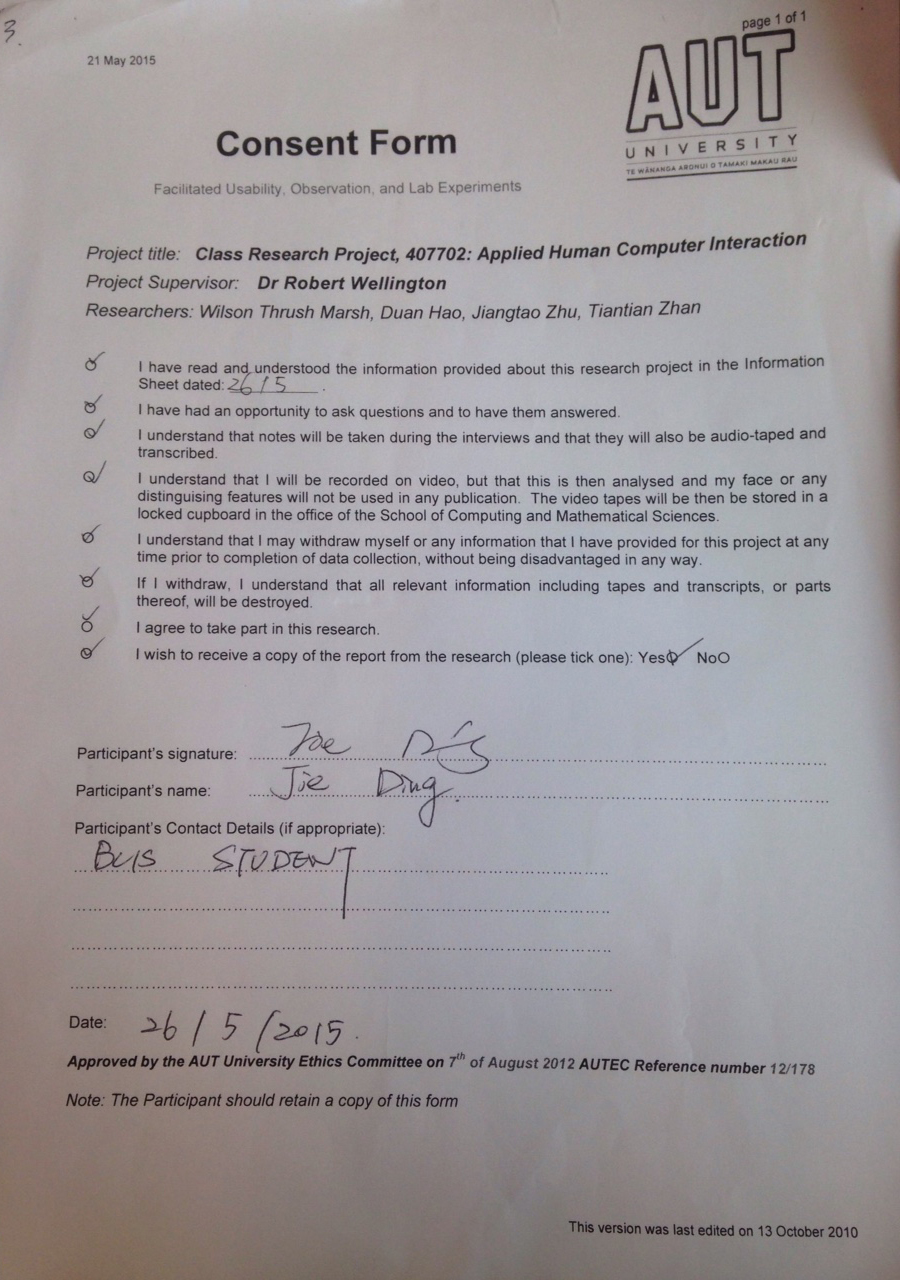 3.
page 1 of 1
21 May 2015
AUT
UNIVERSITY
TE WĀNANGA ARONUI O TAMAKI MAKAU RAU
Consent Form
Facilitated Usability, Observation, and Lab Experiments
Project title: Class Research Project, 407702: Applied Human Computer Interaction
Project Supervisor: Dr Robert Wellington
Researchers: Wilson Thrush Marsh, Duan Hao, Jiangtao Zhu, Tiantian Zhan
I have read and understood the information provided about this research project in the Information
Sheet dated: 26/5 .
I have had an opportunity to ask questions and to have them answered.
I understand that notes will be taken during the interviews and that they will also be audio-taped and
transcribed.
I understand that I will be recorded on video, but that this is then analysed and my face or any
distinguising features will not be used in any publication. The video tapes will be then be stored in a
locked cupboard in the office of the School of Computing and Mathematical Sciences.
I understand that I may withdraw myself or any information that I have provided for this project at any
time prior to completion of data collection, without being disadvantaged in any way.
If I withdraw, I understand that all relevant information including tapes and transcripts, or parts
thereof, will be destroyed.
I agree to take part in this research.
I wish to receive a copy of the report from the research (please tick one): Yes NoO
Participant's signature:
Participant's name: Jie Ding.
Participant's Contact Details (if appropriate):
STUDENT
Date: 26/5/2015.
Approved by the AUT University Ethics Committee on 7th of August 2012 AUTEC Reference number 12/178
Note: The Participant should retain a copy of this form
This version was last edited on 13 October 2010